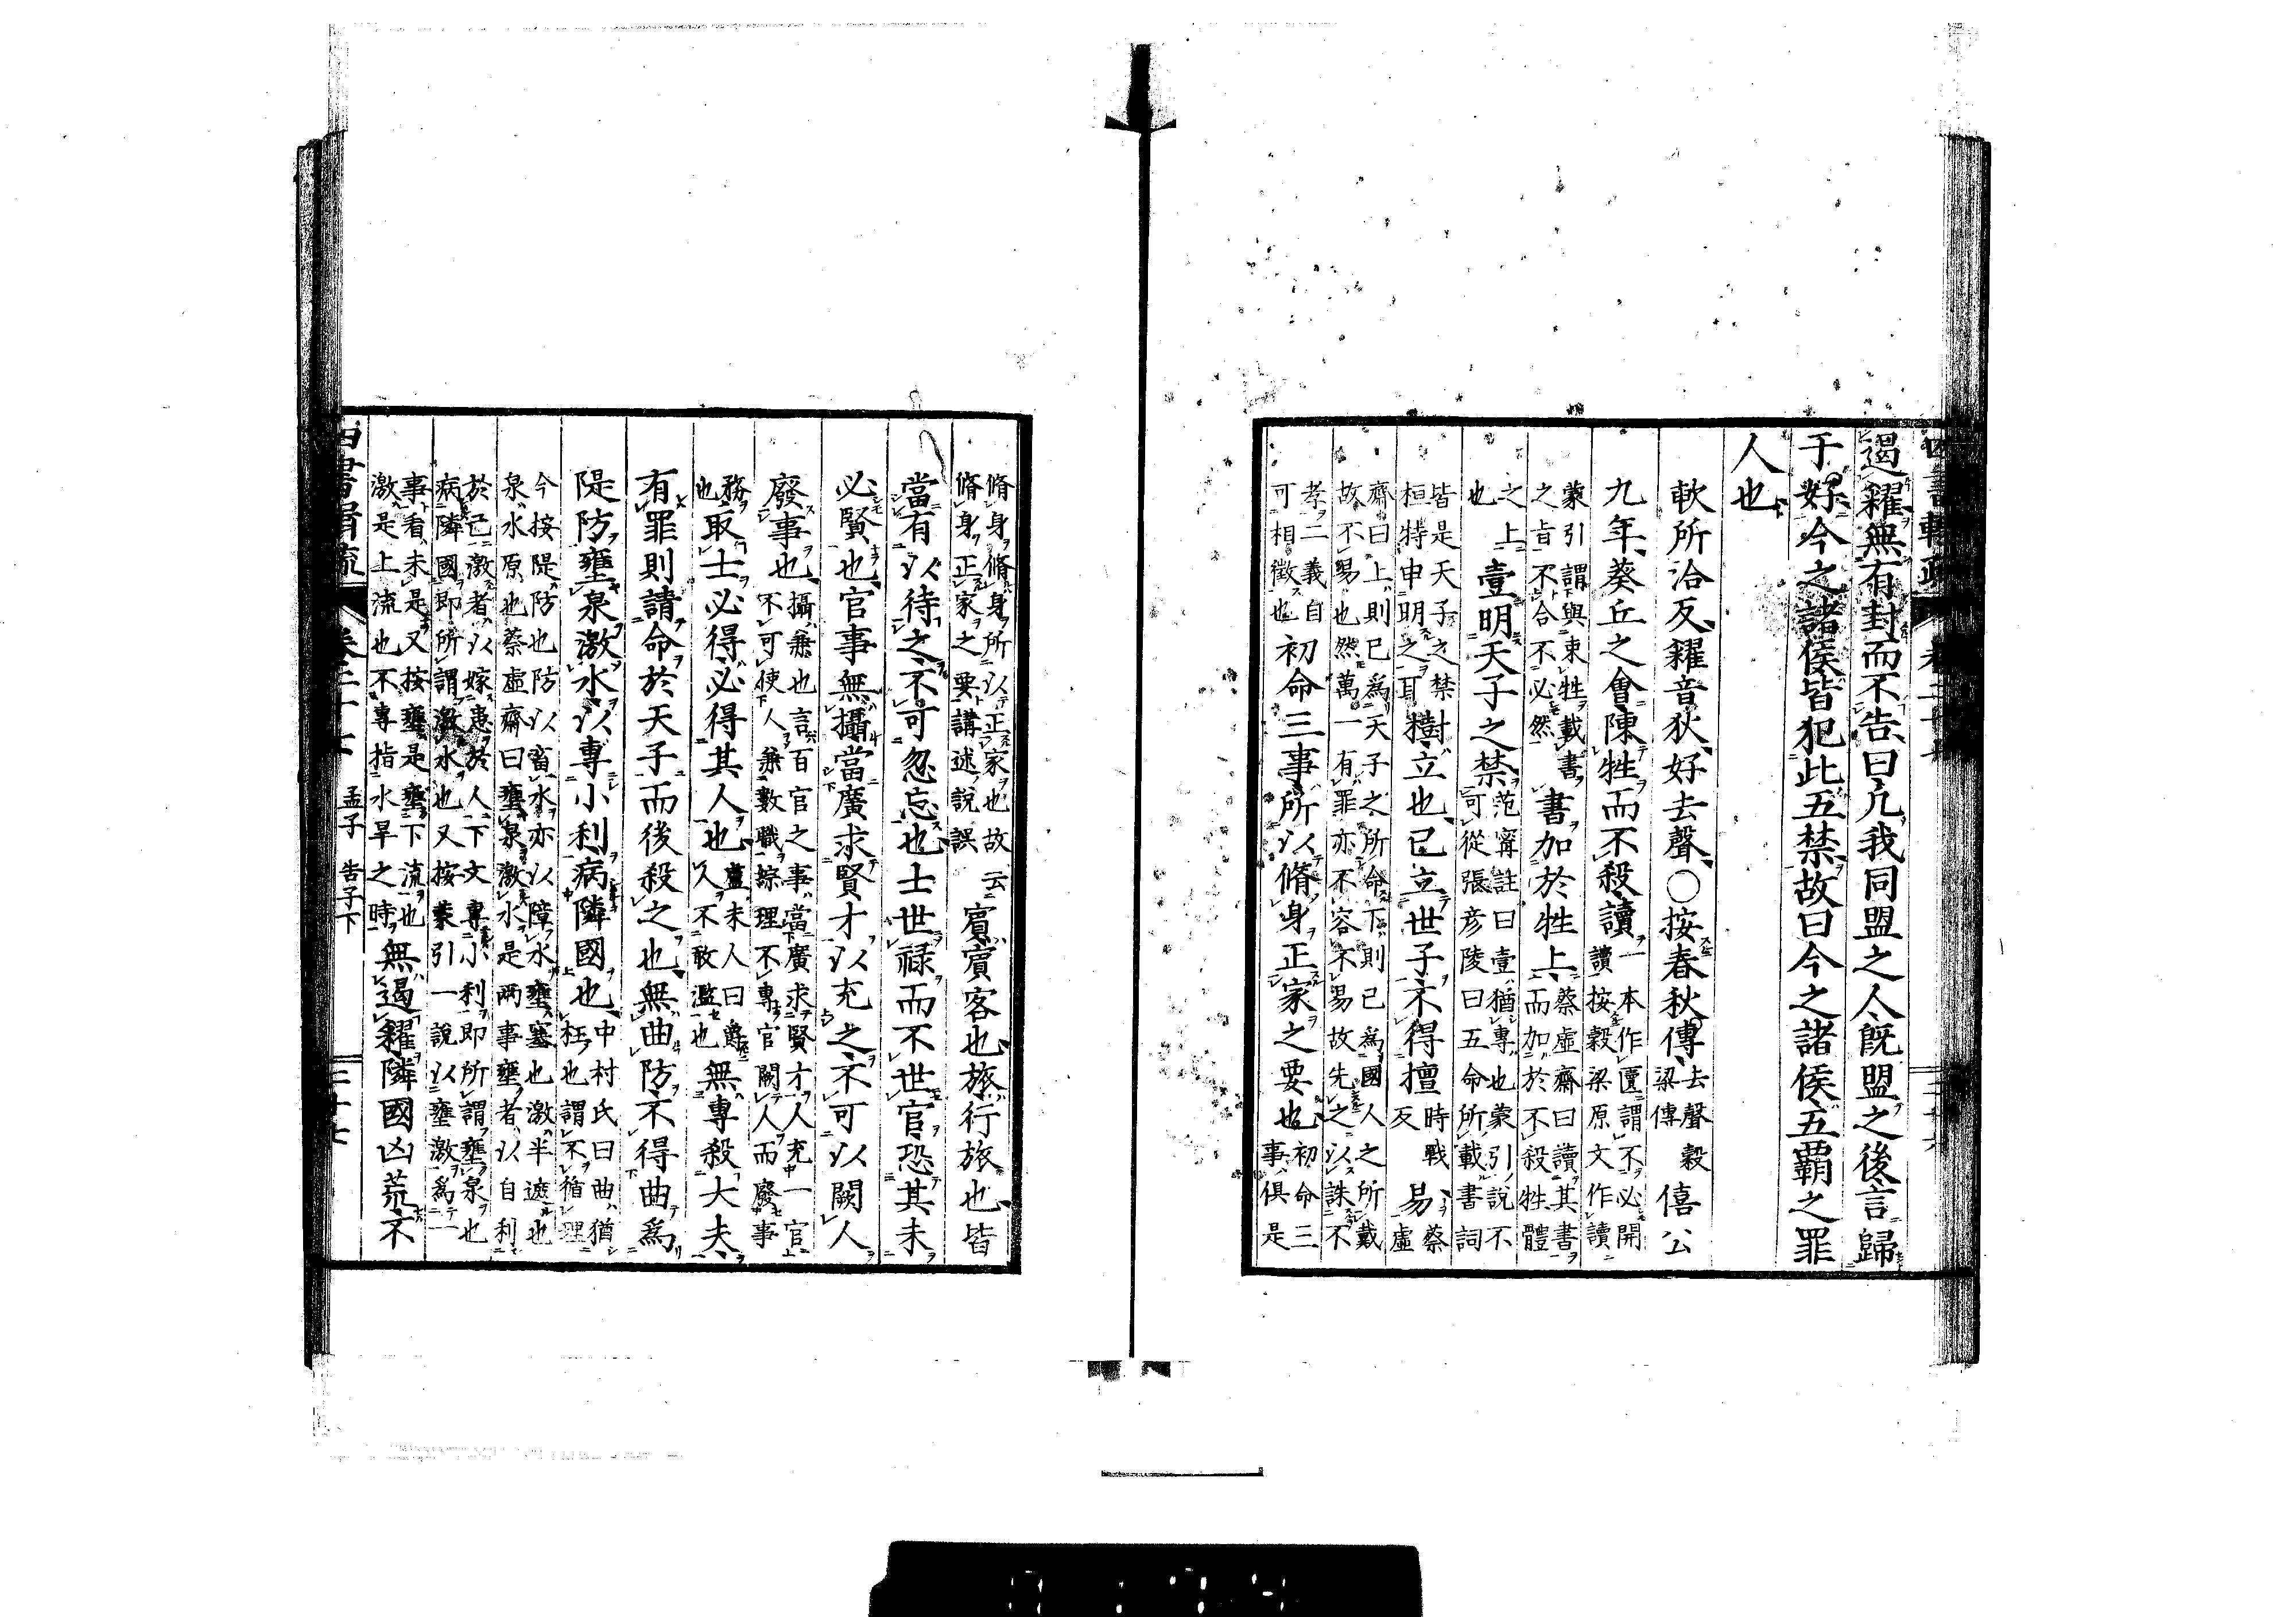 遏糴無有封而不告曰凡我同盟之人旣盟之後言歸
于好今之諸侯皆犯此五禁故曰今之諸侯五覇之罪
人也
歃所洽反糴音狄好去聲〇按春秋傳去聲穀梁傳僖公
九年葵丘之會陳牲而不殺讀一本作匱謂不必開讀按穀梁原文作讀
蒙引謂與束牲載書之旨不合不必然書加於牲上蔡虛齋曰讀其書而加於不殺牲體
之上也壹明天子之禁范甯註曰壹猶專也蒙引說不可從張彦陵曰五命所載書詞
皆是天子之禁桓特申明之耳樹立也已立世子不得擅時戰反易蔡虛
齋曰上則已爲天子之所命下則已爲國人之所戴故不易也然萬一有罪亦不容不易故先之以誅不
孝二義自可相徵也初命三事所以脩身正家之要也初命三事俱是
脩身脩身所以正家也故云脩身正家之要講述說誤賔賔客也旅行旅也皆
當有以待之不可忽忘也士世祿而不世官恐其未
必賢也官事無攝當廣求賢才以充之不可以闕人
廢事也攝兼也言百官之事當廣求賢才人充一官不可使人兼數職綜理不專官闕人而廢事
務也取士必得必得其人也盧未人曰爵久不敢濫也無專殺大夫
有罪則請命於天子而後殺之也無曲防不得曲爲
隄防壅泉激水以專小利病隣國也中村氏曰曲猶枉也謂不循理
今按隄防也防以畜水亦以障水壅塞也激半遮也泉水原也蔡虛齋曰壅泉激水是兩事壅者以自利
於己激者以嫁患於人下文專小利即所謂壅泉也病隣國即所謂激水也又按蒙引一說以壅激爲一
事看未是又按壅是壅下流也激是上流也不專指水旱之時無遏糴隣國凶荒不
卷二十七 孟子 告子下 三十七